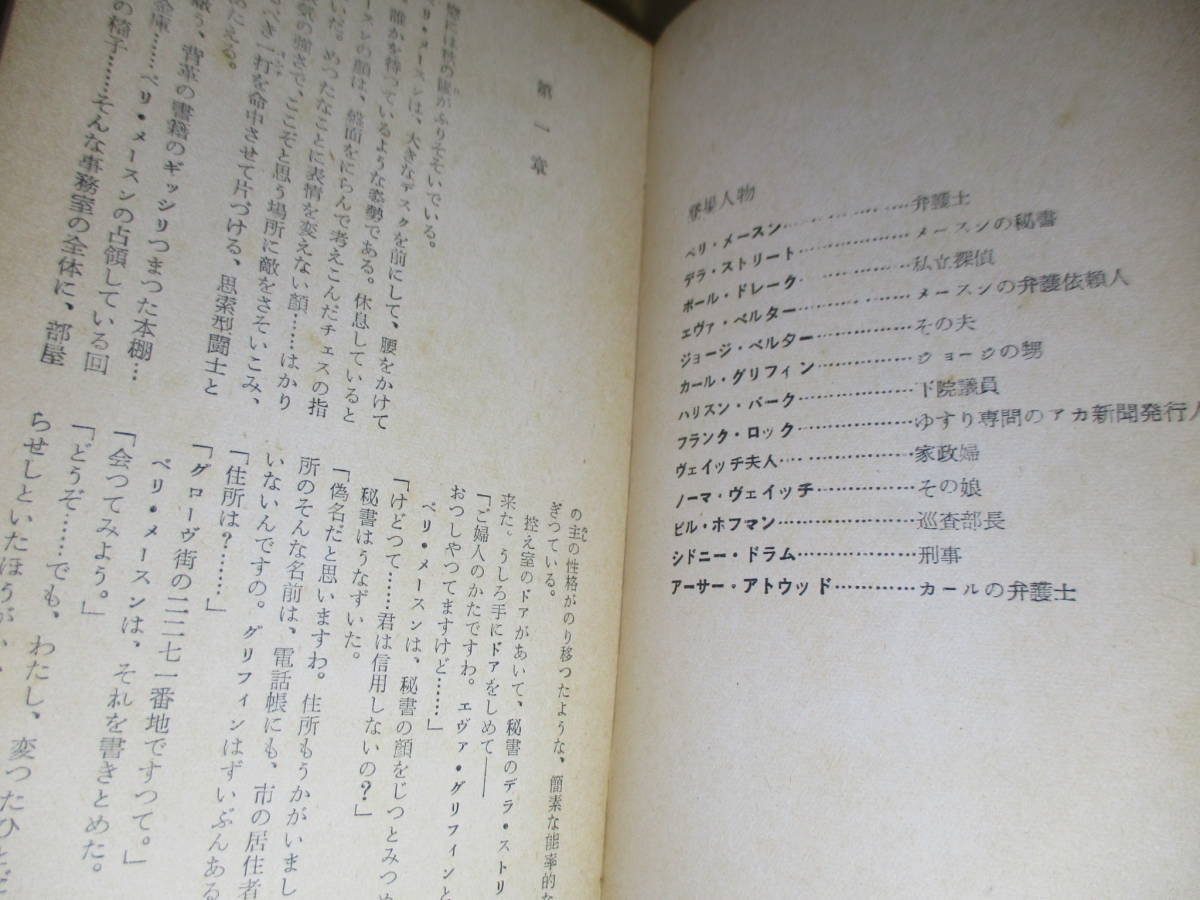 登場人物
ペリ・メースン………………弁護士
デラ・ストリート………………メースンの秘書
ポール・ドレーク………………私立探偵
エヴァ・ベルター………………メースンの弁護依頼人
ジョージ・ベルター………………その夫
カール・グリフィン………………ジョージの甥
ハリスン・バーク………………下院議員
フランク・ロック………………ゆすり専門のアカ新聞発行人
ヴェイッチ夫人………………家政婦
ノーマ・ヴェイッチ………………その娘
ビル・ホフマン………………巡査部長
シドニー・ドラム………………刑事
アーサー・アトウッド………………カールの弁護士
第一章
がふりそそいでいる。
リ・メースンは、大きなデスクを前にして、腰をかけて
誰かを待つているような姿勢である。休息していると
いだ。めつたなことに表情を変えない顔……はかり
スンの顔は、盤面をにらんで考えこんだチェスの指
気の強さで、ここぞと思う場所に敵をさそいこみ、
べき一打を命中させて片づける、思索型闘士と
たえる。
う、背革の書籍のギッシリつまつた本棚…
金庫……ペリ・メースンの占領している回
の椅子……そんな事務室の全体に、部屋
の主の性格がのり移つたような、簡素な能率的な
ぎつている。
控え室のドアがあいて、秘書のデラ・ストリ
来た。うしろ手にドアをしめて——
「ご婦人のかたですわ。エヴァ・グリフィンと
おつしやつてますけど……」
ペリ・メースンは、秘書の顔をじつとみつめ
「けどつて……君は信用しないの？」
秘書はうなずいた。
「偽名だと思いますわ。住所もうかがいまし
所のそんな名前は、電話帳にも、市の居住者
いないんですの。グリフィンはずいぶんある
「住所は？……」
「グローヴ街の二二七一番地ですつて。」
ペリ・メースンは、それを書きとめた。
「会つてみよう。」
「どうぞ……でも、わたし、変つたひとだ
らせしといたほうが